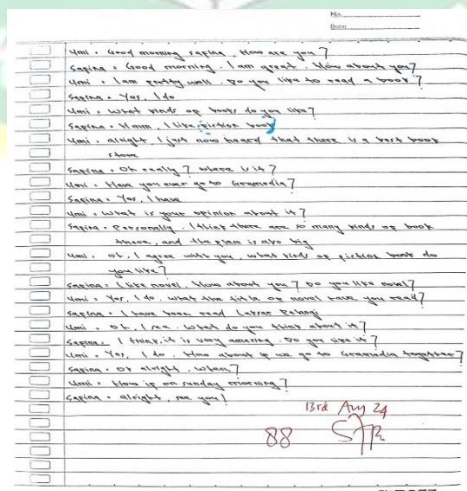 No.
Date
Umi : Good morning sapina, How are you?
Sapina : Good morning. I am great. How about you?
Umi : I am pretty well. Do you like to read a book?
Sapina : Yes, I do
Umi : What kinds of books do you like?
Sapina : Hmm, I like fiction book
Umi : alright, I just now heard that there is a best book
store
Sapina : Oh really? where is it?
Umi : Have you ever go to Gramedia?
Sapina : Yes, I have
Umi : What is your opinion about it?
Sapina : Personally, I think there are so many kinds of book
there, and the place is also big
Umi : Oh, I agree with you, what kinds of fiction book do
you like?
Sapina : I like novel. How about you? Do you like novel?
Umi : Yes, I do. what the title of novel have you read?
Sapina : I have been read Laskar Pelangi
Umi : Oh, I see. What do you think about it?
Sapina : I think, it is very amazing. Do you like it?
Umi : Yes, I do. How about if we go to Gramedia together?
Sapina : Of alright, when?
Umi : How if on sunday morning?
Sapina : alright, see you!
13rd Aug 24
88